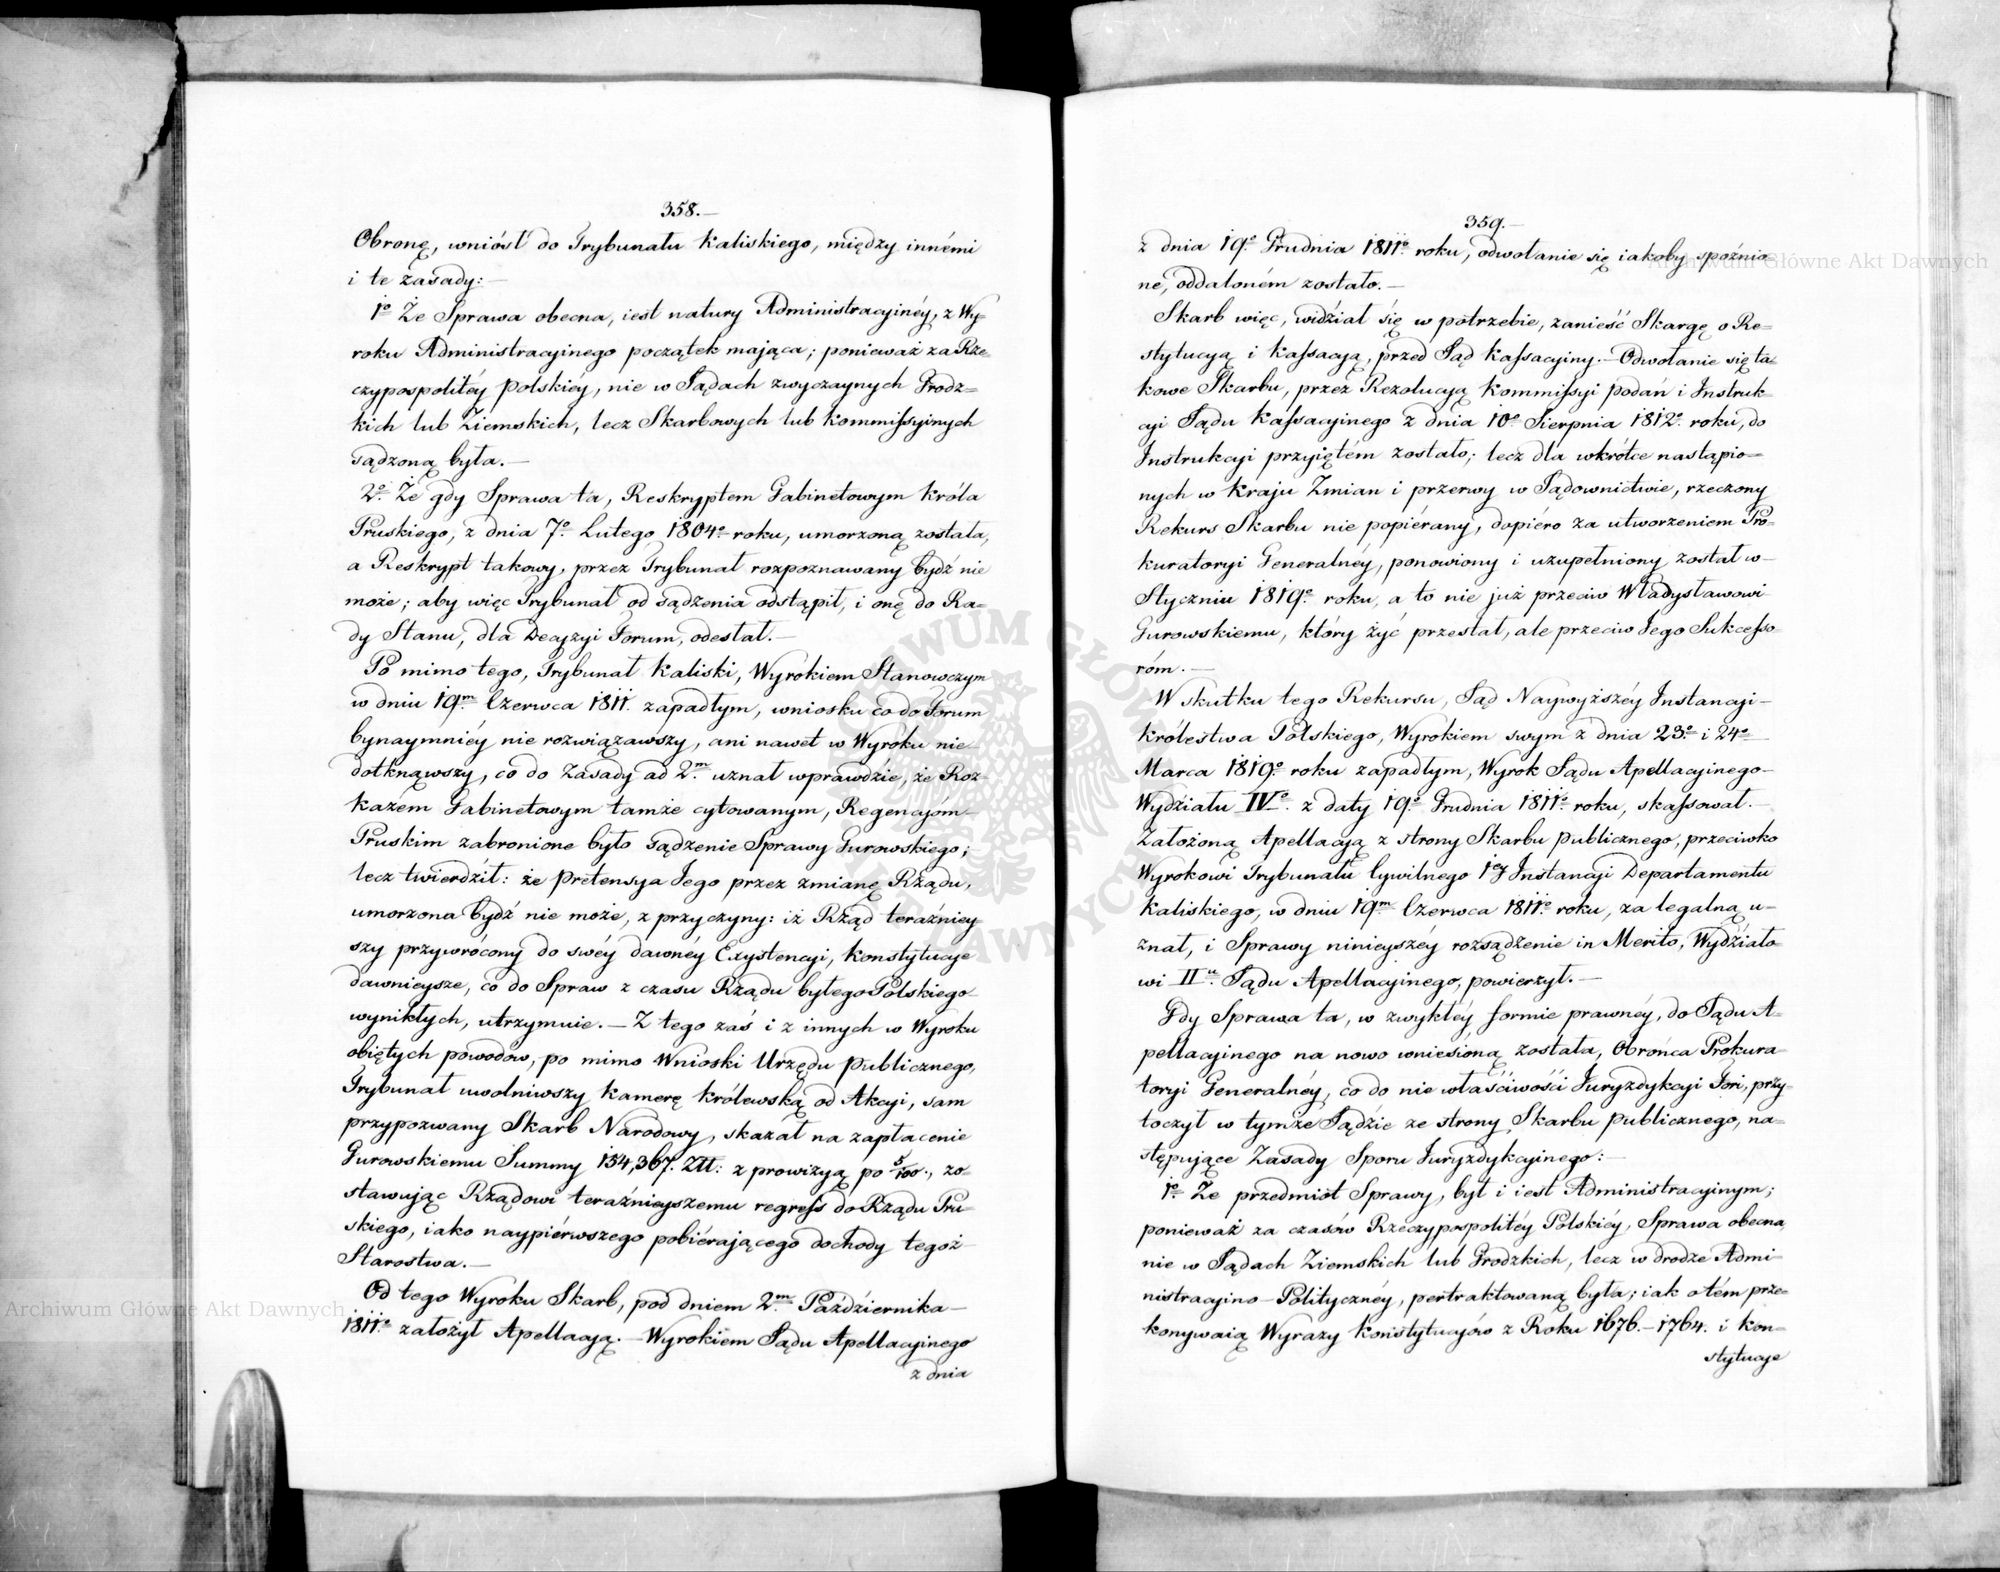 358.—
Obronę, wniósł do Trybunału Kaliskiego, między innémi
i te zasady:—
1º Że Sprawa obecna, iest natury Administracyinéy, z Wy-
roku Administracyinego początek mająca; ponieważ za Rze-
czypospolitéy Polskiéy, nie w Sądach zwyczaynych Grodz-
kich lub Ziemskich, lecz Skarbowych lub Kommissyinych
sądzoną była.—
2º. Że gdy Sprawa ta, Reskryptem Gabinetowym Króla
Pruskiego, z dnia 7º Lutego 1804º roku, umorzoną została,
a Reskrypt takowy, przez Trybunał rozpoznawany bydź nie
może; aby więc Trybunał od sądzenia odstąpił, i onę do Ra-
dy Stanu, dla Decyzyi Forum, odesłał.—
Po mimo tego, Trybunał Kaliski, Wyrokiem Stanowczym
w dniu 19m. Czerwca 1811. zapadłym, wniosku co do Forum
bynaymniéy nie rozwiązawszy, ani nawet w Wyroku nie-
dotknąwszy, co do Zasady ad 2m. uznał wprawdzie, że Roz-
kazem Gabinetowym tamże cytowanym, Regencyóm-
Pruskim zabronione było sądzenie Sprawy Gurowskiego;
lecz twierdził: że Pretensya Jego przez zmianę Rządu,
umorzona bydź nie może, z przyczyny: iż Rząd teraźniey-
szy przywrócony do swéy dawnéy Exystencyi, Konstytucye
dawnieysze, co do Spraw z czasu Rządu byłego Polskiego
wynikłych, utrzymuie.— Z tego zaś i z innych w Wyroku
obiętych powodów, po mimo Wnioski Urzędu Publicznego,
Trybunał uwolniwszy Kamerę Królewską od Akcyi, sam
przypozwany Skarb Narodowy, skazał na zapłacenie
Gurowskiemu Summy 154,367. Złł: z prowizyą po 5/100., zo-
stawując Rządowi teraźnieyszemu regress do Rządu Pru-
skiego, iako naypiérwszego pobiérającego dochody tegoż-
Starostwa.—
Od tego Wyroku Skarb, pod dniem 2m. Października—
1811º założył Apellacyą.— Wyrokiem Sądu Apellacyinego
z dnia
359.—
z dnia 19º. Grudnia 1811º. roku, odwołanie się iakoby spóźnio-
ne, oddaloném zostało.—
Skarb więc, widział się w potrzebie, zanieść Skargę o Re-
stytucyą i Kassacyą, przed Sąd Kassacyiny.— Odwołanie się ta-
kowe Skarbu, przez Rezolucyą Kommissyi podań i Instruk-
cyi Sądu Kassacyinego z dnia 10º Sierpnia 1812º. roku, do
Instrukcyi przyiętém zostało; lecz dla wkrótce nastąpio-
nych w Kraju Zmian i przerwy w Sądownictwie, rzeczony
Rekurs Skarbu nie popiérany, dopiéro za utworzeniem Pro-
kuratoryi Generalnéy, ponowiony i uzupełniony został w-
Styczniu 1819º. roku, a to nie już przeciw Władysławowi
Gurowskiemu, który żyć przestał, ale przeciw Jego Sukcesso-
róm.—
W skutku tego Rekursu, Sąd Naywyższéy Instancyi-
Królestwa Polskiego, Wyrokiem swym z dnia 23º. i 24º
Marca 1819º. roku zapadłym, Wyrok Sądu Apellacyinego-
Wydziału IVº. z daty 19º. Grudnia 1811º. roku, skassował.—
Założoną Apellacyą z strony Skarbu Publicznego, przeciwko
Wyrokowi Trybunału Cywilnego 1éy Instancyi Departamentu
Kaliskiego, w dniu 19m. Czerwca 1811º. roku, za legalną u-
znał, i Sprawy ninieyszéy rozsądzenie in Merito, Wydziało-
wi IIu. Sądu Apellacyinego, powierzył.—
Gdy Sprawa ta, w zwykłéy formie prawnéy, do Sądu A-
pellacyinego na nowo wniesioną została, Obrońca Prokura-
toryi Generalnéy, co do nie właściwości Juryzdykcyi Fori, przy-
toczył w tymże Sądzie ze strony Skarbu Publicznego, na-
stępujące Zasady Sporu Juryzdykcyinego:—
1º. Że przedmiot Sprawy, był i iest Administracyinym;
ponieważ za czasów Rzeczypospolitéy Polskiéy, Sprawa obecna,
nie w Sądach Ziemskich lub Grodzkich, lecz w drodze Admi-
nistracyino—Polityczney, pertraktowaną była; iak o tém prze-
konywaią Wyrazy Konstytucyów z Roku 1676.—1764. i Kon-
stytucye
Archiwum Główne Akt Dawnych
Archiwum Główne Akt Dawnych
ARCHIWUM GŁÓWNE AKT DAWNYCH